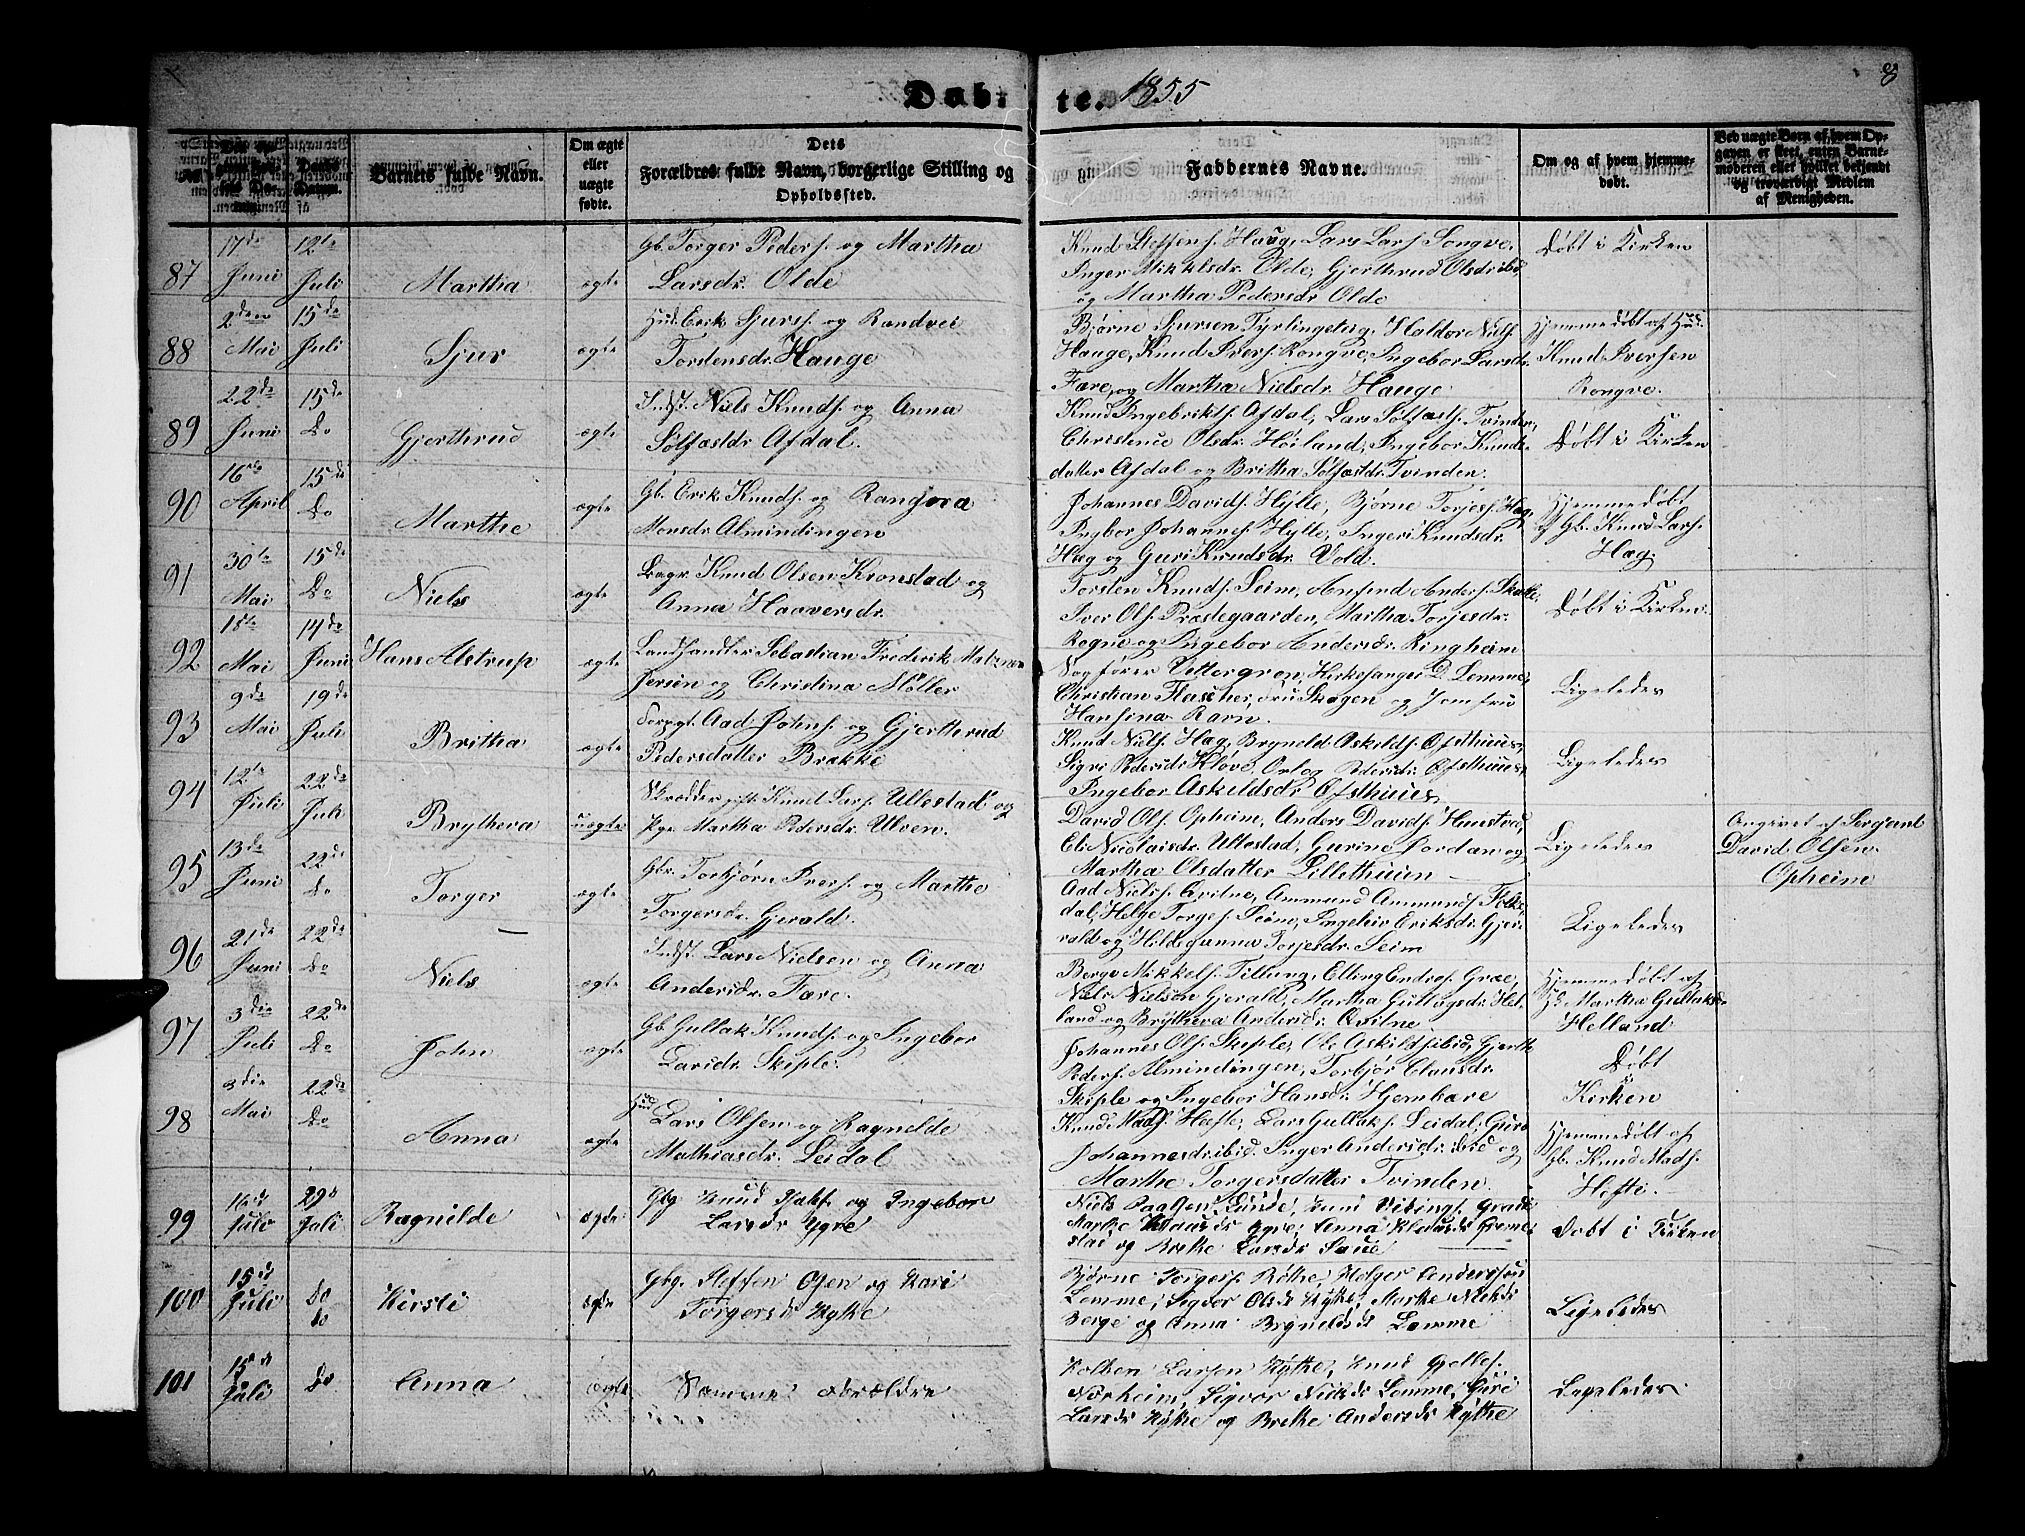 Døb- te. 1855
8
Barnets fulde Navn.
Om ægte eller uægte fødte.
Dets Forældres fulde Navn, borgerlige Stilling og Opholdssted.
Faddernes Navne.
Om og af hvem hjemmedøbt.
Ved uægte Børn af hvem Opgaven er skeet, enten Barnemoderen eller hvilket bekjendt og troværdigt Medlem af Menigheden.
87 17de Juni 12te Juli Martha ægte
Gb. Torger Peders. og Martha
Larsdr. Olde
Knud Steffens. Haug, Lars Lars. Songve,
Inger Mikkelsdr. Olde, Gjerthrud Olsdr ibid,
og Martha Pedersdr. Olde
Døbt i Kirken
88 2den Mai 15de Juli Sjur ægte
Hud. Erik Sjurs. og Randvei
Torstensdr. Hauge
Bjørne Sjursen Tyrlingsteig, Haldor Niels.
Hauge, Knud Ivers. Rongve, Ingebor Larsdr.
Fære, og Martha Nielsdr. Hauge
Hjemmedøbt af Hud.
Knud Iversen
Rongve.
89 22de Juni 15de Do Gjerthrud ægte
Indst. Niels Knuds. og Anna
Sølfæstdr. Afdal.
Knud Ingebrikts. Afdal, Lars Sølfæsts. Tvinden,
Christense Olsdr. Høiland, Ingebor Knuds-
datter Afdal og Britha Sølfæstdr. Tvinden.
Døbt i Kirken
90 16de April 15de Do Marthe ægte
Gb. Erik Knuds. og Rangvea
Monsdr. Almindingen
Johannes Davids. Hylle, Bjørne Torjes. Hæg,
Ingbor Johannes. Hylle, Ingeri Knudsdr.
Hæg og Guri Knudsdr. Vold.
Hjemmedøbt
af Gb. Knud Lars.
Hæg
91 30te Mai 15de Do Niels ægte
Knud Olsen Kronstad og
Anna Haaversdr.
Torsten Knuds. Seim, Ansfind Anders. Skutle,
Iver Ols. Præstegaarden, Martha Torjesdr.
Rogne og Ingebor Andersdr. Ringheim
Døbt i Kirken
92 18te Mai 14de Juni Hans Alstrup ægte
Landhandler Sebastian Frederik
og Christina Møller
Sagfører Vettergren, Kirkesanger D. Lemme,
Christian Flascher, Fru Skogen og Jomfru
Hansina Ravn.
Ligeledes
93 9de Mai 19de Juli Britha ægte
Aad Johns. og Gjerthrud
Pedersdatter Brække
Knud Niels. Hæg, Bryneld Askilds. Ofsthuus,
Sigri Pedersdr. Kløve, Pedersdr. Ofsthuus,
Ingebor Askildsdr. Ofsthuus
Ligeledes
94 12te Juli 22de Juli Brytheva uægte
Skrædder gift Knud Lars. Ullestad og
Pge. Martha Pedersdr. Ulven.
David Ols. Opheim, Anders Davids. Hustved,
Eli Nicolaisdr. Ullestad, Gurine Jordan og
Martha Olsdatter Lillethuen
Ligeledes
Angivet af Sergeant
David Olsen
Opheim
95 13de Juni 22de Do Torger ægte
Gbr. Torbjørn Ivers. og Marthe
Torgersdr. Gjerald.
Aad Niels. Qvitne, Ammund Ammunds. Flek-
dal, Helge Torges. Seim, Ingeleiv Eriksdr. Gje-
rald og Hildegunna Torjesdr. Seim
Ligeledes
96 21de Juni 22de Do Niels ægte
Indst. Lars Nielsen og Anna
Andersdr. Fære.
Berge Mikkels. Tillung, Elling Endres. Græe,
Niels Nielsen Gjerald, Martha Gullagsdr. Hel-
land og Brytheva Andersdr. Qvitne
Hjemmedøbt af
Martha Gullaksdr.
Helland
97 3die Juli 22de Do John ægte
Gb. Gullak Knuds. og Ingebor
Larsdr. Skiple.
Johannes Ols. Skiple, Ole Askilds. ibid, Gjerth.
Peders. Almindingen, Torbjør Clausdr.
Skiple og Ingebor Hansdr. Hjernhare
Døbt
i
Kirken
98 3die Mai 22de Do Anna ægte
Hud. Lars Olsen og Ragnilde
Mathiasdr. Leidal
Knud Mads. Hefte, Lars Gullaks. Leidal, Guro
Johannesdr ibid, Inger Andersdr. ibid og
Marthe Torgersdatter Tvinden.
Hjemmedøbt af
Gb. Knud Mads.
Hefti.
99 16de Juli 29d Juli Ragnilde ægte
Gbg Knud og Ingebor
Larsdr Ygre
Niels
Marthe Klausdr Ygre, Anna
stad og Brithe Larsdr Saue
Dobt i Kirken
100 15de Juli Do Do Kirsti ægte
Gbg. Steffen Osen og Kari
Torgersd Kytke
Bjørne Torgers. Røthe, Holger Anderssøn
Lemme, Sigvor Olsdr Kytke, Marthe Nielsdr
Berge og Anna Brynelds Lemme
Ligeledes
101 15de Juli Do Anna ægte
Samme Forældre
Kolben Larsen Kytke, Knud
Nørheim, Sigvor Nielsdr Lemme, Guri
Larsdr Kytke og Brithe Andersdr Kytke
Ligeledes